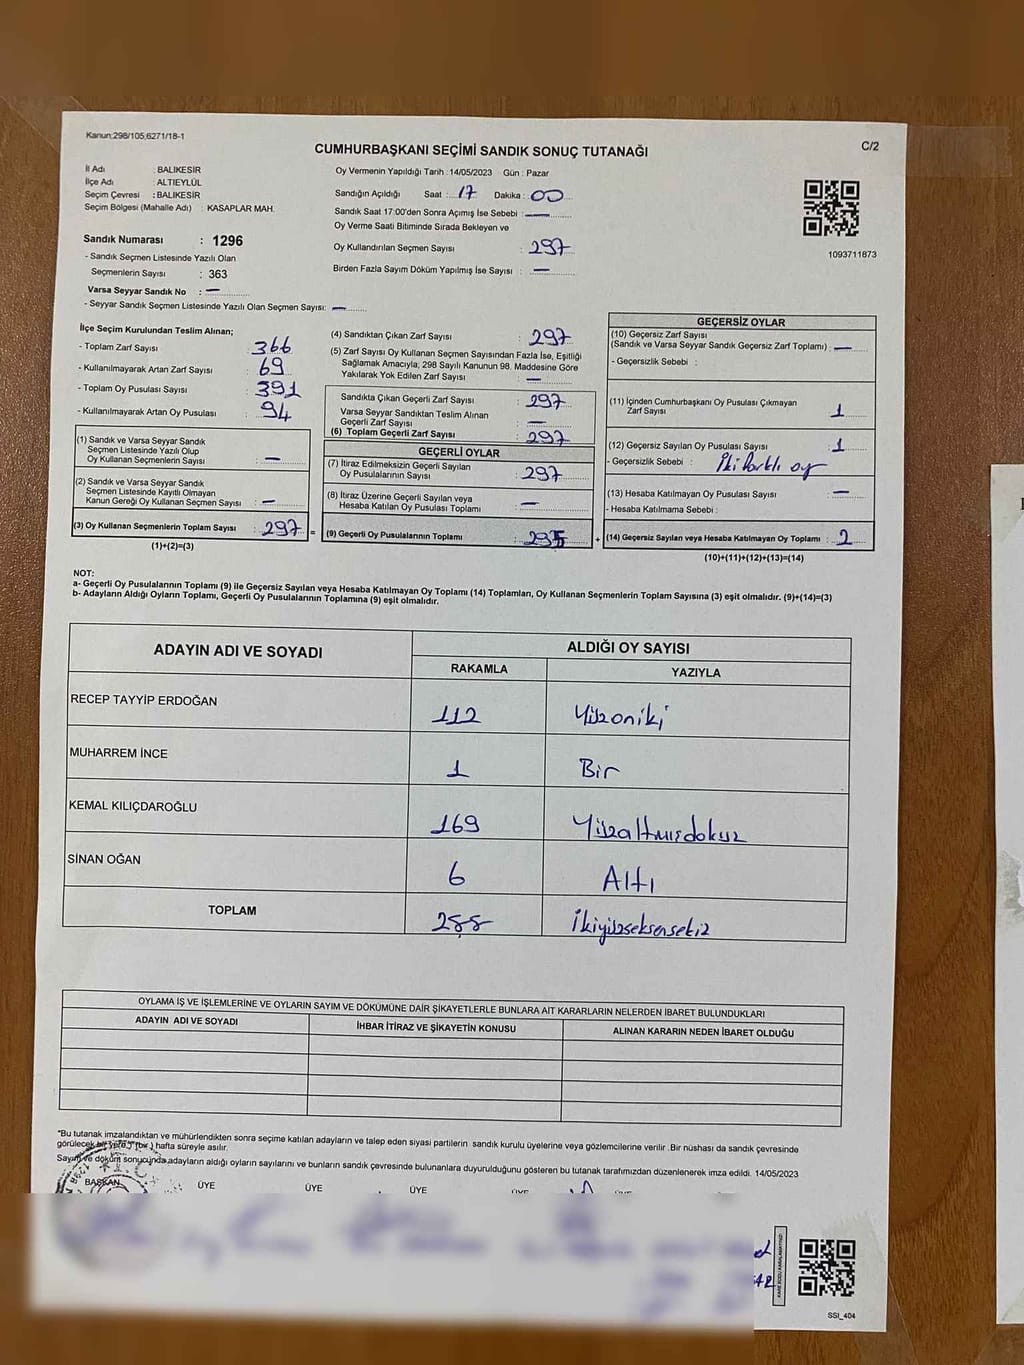 Kanun;298/105,6271/18-1
C/2
CUMHURBAŞKANI SEÇİMİ SANDIK SONUÇ TUTANAĞI
İl Adı : BALIKESİR
İlçe Adı : ALTIEYLÜL
Seçim Çevresi : BALIKESİR
Seçim Bölgesi (Mahalle Adı) : KASAPLAR MAH.
Sandık Numarası : 1296
- Sandık Seçmen Listesinde Yazılı Olan
Seçmenlerin Sayısı : 363
Varsa Seyyar Sandık No : —
- Seyyar Sandık Seçmen Listesinde Yazılı Olan Seçmen Sayısı: —
Oy Vermenin Yapıldığı Tarih : 14/05/2023 Gün : Pazar
Sandığın Açıldığı Saat : 17 Dakika : 00
Sandık Saat 17:00'den Sonra Açımış İse Sebebi : —
Oy Verme Saati Bitiminde Sırada Bekleyen ve
Oy Kullandırılan Seçmen Sayısı : 297
Birden Fazla Sayım Döküm Yapılmış İse Sayısı : —
1093711873
İlçe Seçim Kurulundan Teslim Alınan;
- Toplam Zarf Sayısı : 366
- Kullanılmayarak Artan Zarf Sayısı : 69
- Toplam Oy Pusulası Sayısı : 391
- Kullanılmayarak Artan Oy Pusulası : 94
(1) Sandık ve Varsa Seyyar Sandık
Seçmen Listesinde Yazılı Olup
Oy Kullanan Seçmenlerin Sayısı : —
(2) Sandık ve Varsa Seyyar Sandık
Seçmen Listesinde Kayıtlı Olmayan
Kanun Gereği Oy Kullanan Seçmen Sayısı : —
(3) Oy Kullanan Seçmenlerin Toplam Sayısı : 297 =
(1)+(2)=(3)
(4) Sandıktan Çıkan Zarf Sayısı : 297
(5) Zarf Sayısı Oy Kullanan Seçmen Sayısından Fazla İse, Eşitliği
Sağlamak Amacıyla; 298 Sayılı Kanunun 98. Maddesine Göre
Yakılarak Yok Edilen Zarf Sayısı : —
Sandıkta Çıkan Geçerli Zarf Sayısı : 297
Varsa Seyyar Sandıktan Teslim Alınan
Geçerli Zarf Sayısı : —
(6) Toplam Geçerli Zarf Sayısı : 297
GEÇERLİ OYLAR
(7) İtiraz Edilmeksizin Geçerli Sayılan
Oy Pusulalarının Sayısı : 297
(8) İtiraz Üzerine Geçerli Sayılan veya
Hesaba Katılan Oy Pusulası Toplamı : —
(9) Geçerli Oy Pusulalarının Toplamı : 295 +
GEÇERSİZ OYLAR
(10) Geçersiz Zarf Sayısı
(Sandık ve Varsa Seyyar Sandık Geçersiz Zarf Toplamı) : —
- Geçersizlik Sebebi :
(11) İçinden Cumhurbaşkanı Oy Pusulası Çıkmayan
Zarf Sayısı : 1
(12) Geçersiz Sayılan Oy Pusulası Sayısı : 1
- Geçersizlik Sebebi : İki farklı oy
(13) Hesaba Katılmayan Oy Pusulası Sayısı : —
- Hesaba Katılmama Sebebi :
(14) Geçersiz Sayılan veya Hesaba Katılmayan Oy Toplamı : 2
(10)+(11)+(12)+(13)=(14)
NOT:
a- Geçerli Oy Pusulalarının Toplamı (9) ile Geçersiz Sayılan veya Hesaba Katılmayan Oy Toplamı (14) Toplamları, Oy Kullanan Seçmenlerin Toplam Sayısına (3) eşit olmalıdır. (9)+(14)=(3)
b- Adayların Aldığı Oyların Toplamı, Geçerli Oy Pusulalarının Toplamına (9) eşit olmalıdır.
ADAYIN ADI VE SOYADI
ALDIĞI OY SAYISI
RAKAMLA YAZIYLA
RECEP TAYYİP ERDOĞAN 112 Yüzoniki
MUHARREM İNCE 1 Bir
KEMAL KILIÇDAROĞLU 169 Yüzaltmışdokuz
SİNAN OĞAN 6 Altı
TOPLAM 288 İkiyüzseksensekiz
OYLAMA İŞ VE İŞLEMLERİNE VE OYLARIN SAYIM VE DÖKÜMÜNE DAİR ŞİKAYETLERLE BUNLARA AİT KARARLARIN NELERDEN İBARET BULUNDUKLARI
ADAYIN ADI VE SOYADI İHBAR İTİRAZ VE ŞİKAYETİN KONUSU ALINAN KARARIN NEDEN İBARET OLDUĞU
*Bu tutanak imzalandıktan ve mühürlendikten sonra seçime katılan adayların ve talep eden siyasi partilerin sandık kurulu üyelerine veya gözlemcilerine verilir. Bir nüshası da sandık çevresinde
görülecek bir yere (bir) hafta süreyle asılır.
Sayım ve döküm sonucunda adayların aldığı oyların sayılarını ve bunların sandık çevresinde bulunanlara duyurulduğunu gösteren bu tutanak tarafımızdan düzenlenerek imza edildi. 14/05/2023
BAŞKAN ÜYE ÜYE ÜYE ÜYE ÜYE
KARE KODU KARALAMAYINIZ!
SSI_404